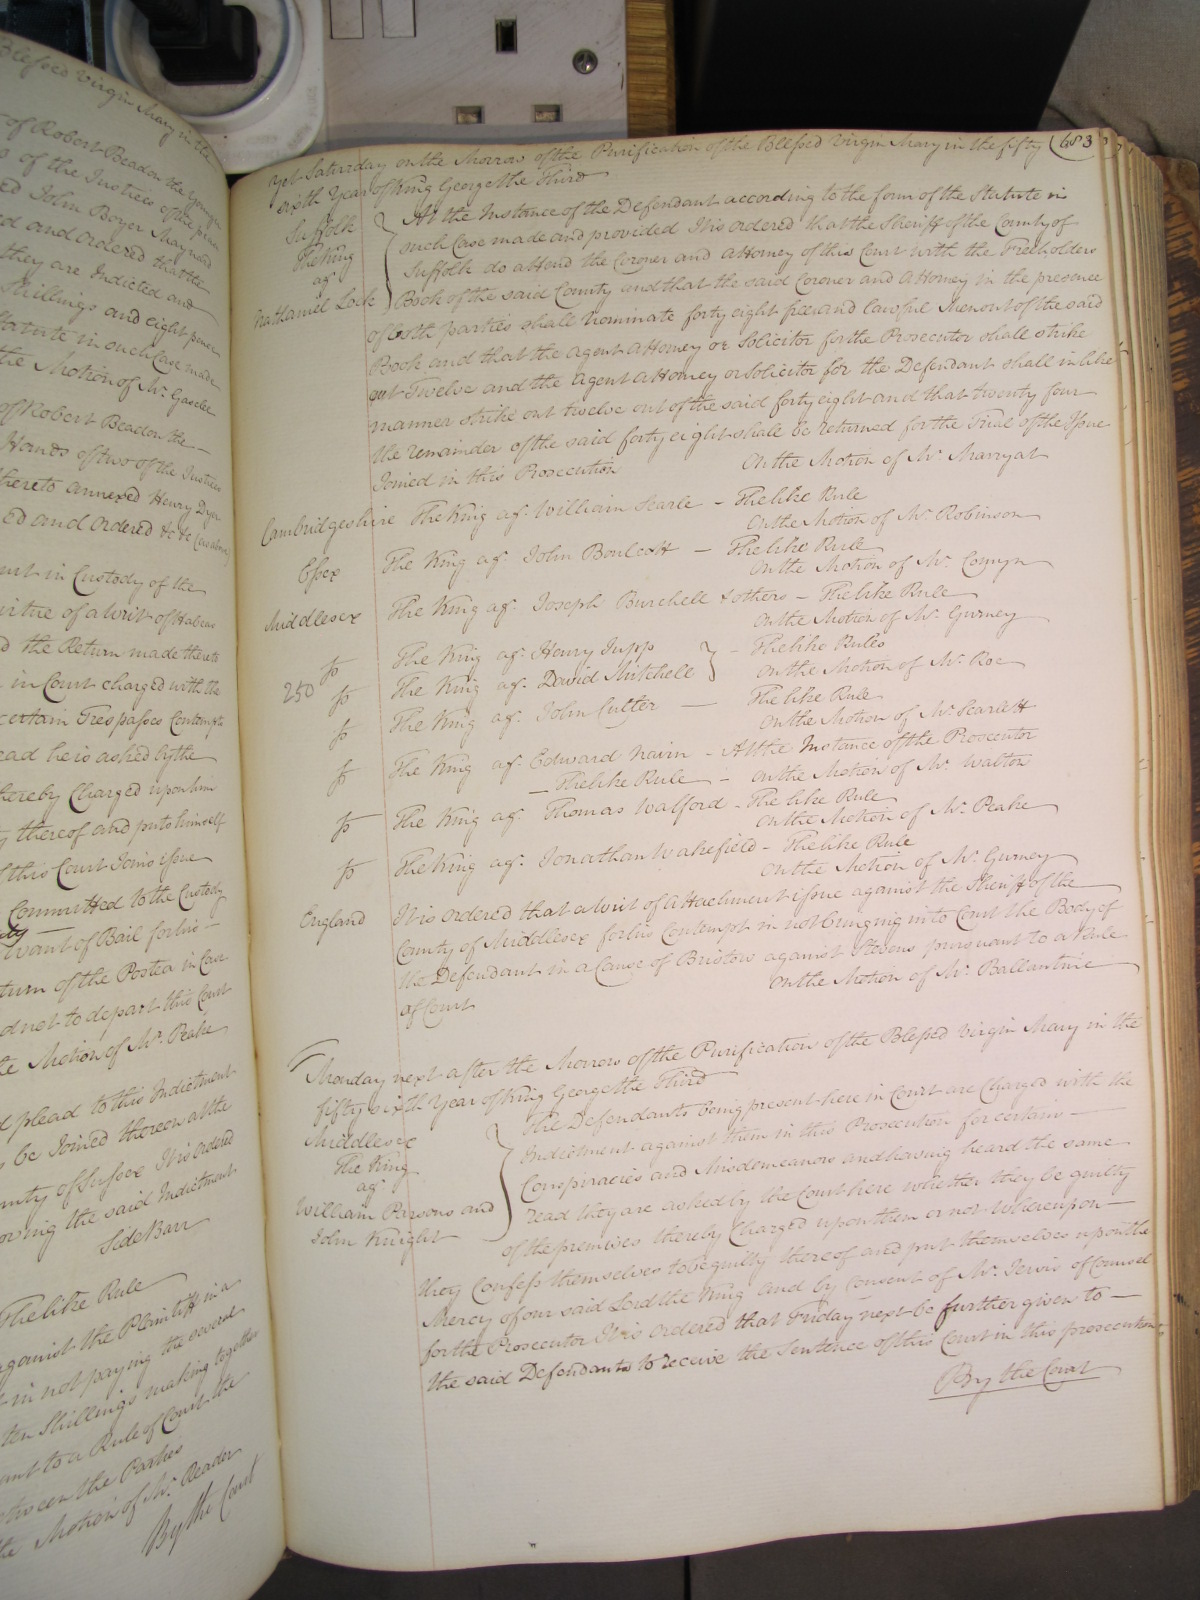 Blessed Virgin Mary in the
of Robert Beadon the Younger
of the Justices of the peace
ed John Boyer Maynard
d and ordered that the
they are Indicted and
Shillings and eight pence
Statute in such Case made
the Motion of Mr. Gaselee
of Robert Beadon the
Hands of two of the Justices
thereto annexed Henry Dyer
ed and Ordered &c &c (as above)
in Custody of the
virtue of a Writ of Habeas
d the Return made thereto
in Court charged with the
certain Trespasses Contempts
ead he is asked by the
hereby Charged upon him
y thereof and puts himself
this Court Joins issue
Committed to the Custody
Want of Bail for his
turn of the Postea in Case
d not to depart this Court
the Motion of Mr. Peake
d plead to this Indictment
be Joined thereon at the
County of Sussex It is ordered
oving the said Indictment
Side Barr
The like Rule
against the Plaintiff in a
t in not paying the several
ten Shillings making together
ant to a Rule of Court the
etween the Parties
the Motion of Mr. Reader
By the Court
683
Yet Saturday on the Morrow of the Purification of the Blessed Virgin Mary in the fifty
sixth Year of King George the Third
Suffolk
The King
agt.
Nathaniel Lock
At the Instance of the Defendant according to the form of the Statute in
such Case made and provided It is ordered that the Sheriff of the County of
Suffolk do attend the Coroner and Attorney of this Court with the Freeholders
Book of the said County and that the said Coroner and Attorney in the presence
of both parties shall nominate forty eight free and Lawful Men out of the said
Book and that the Agent Attorney or Solicitor for the Prosecutor shall strike
out Twelve and the Agent Attorney or Solicitor for the Defendant shall in like
manner strike out twelve out of the said forty eight and that twenty four
the remainder of the said forty eight shall be returned for the Trial of the Issue
Joined in this Prosecution On the Motion of Mr. Marryat
Cambridgeshire The King agt. William Searle - The like Rule
On the Motion of Mr. Robinson
Essex The King agt. John Boulcott - The like Rule
On the Motion of Mr. Comyn
Middlesex The King agt. Joseph Burchell & others - The like Rule
On the Motion of Mr. Gurney
So The King agt. Henry Jupp - The like Rules
250 So The King agt. David Mitchell On the Motion of Mr. Roe
So The King agt. John Cutter - The like Rule
On the Motion of Mr. Scarlett
So The King agt. Edward Nairn - At the Instance of the Prosecutor
- The like Rule - On the Motion of Mr. Walton
So The King agt. Thomas Walford - The like Rule
On the Motion of Mr. Peake
So The King agt. Jonathan Wakefield - The like Rule
On the Motion of Mr. Gurney
England It is ordered that a Writ of Attachment issue against the Sheriff of the
County of Middlesex for his Contempt in not bringing into Court the Body of
the Defendant in a Cause of Bristow against Stevens pursuant to a Rule
of Court On the Motion of Mr. Ballantine
Monday next after the Morrow of the Purification of the Blessed Virgin Mary in the
fifty sixth Year of King George the Third
Middlesex
The King
agt.
William Parsons and
John Knight
The Defendants being present here in Court are Charged with the
Indictment against them in this Prosecution for certain
Conspiracies and Misdemeanors and having heard the same
read they are asked by the Court here whether they be guilty
of the premises thereby Charged upon them or not Whereupon
they Confess themselves to be guilty thereof and put themselves upon the
Mercy of our said Lord the King and by Consent of Mr. Jervis of Counsel
for the Prosecutor It is ordered that Friday next be further given to
the said Defendants to receive the Sentence of this Court in this prosecution
By the Court